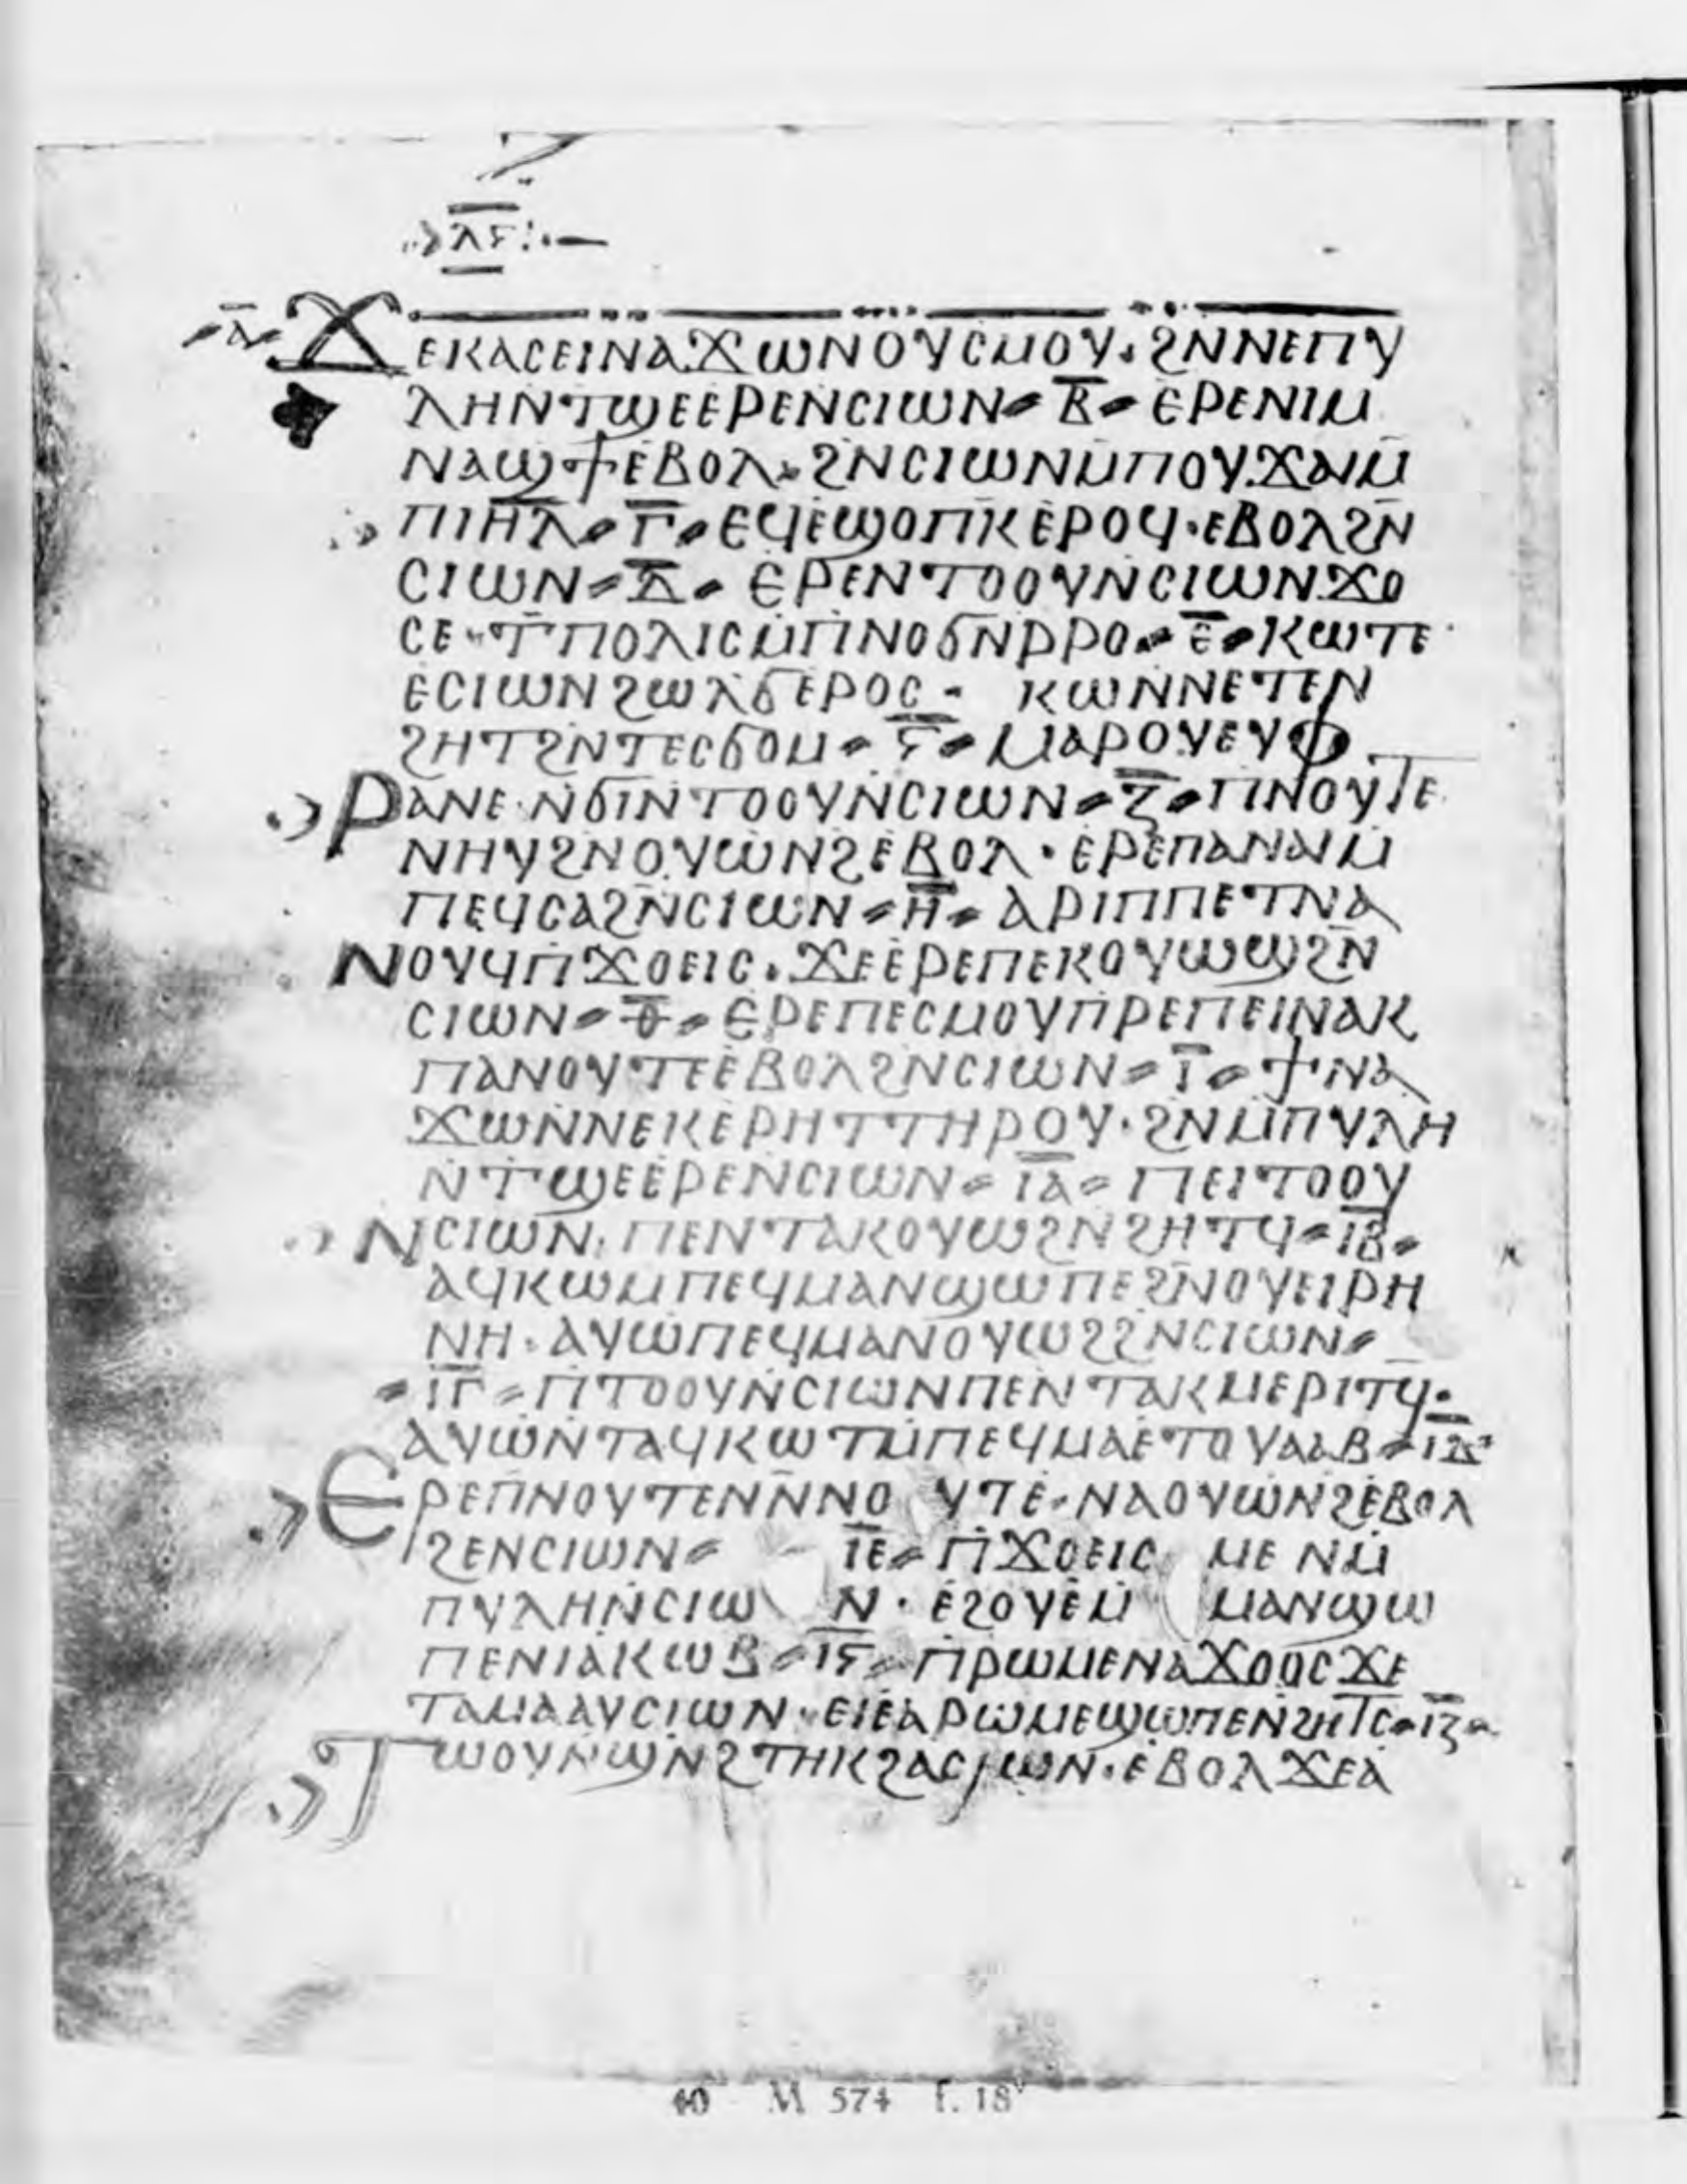 ⲗⲋ
ⲁ̅ Ϫⲉⲕⲁⲥⲉⲓⲛⲁϫⲱⲛⲟⲩⲥⲙⲟⲩ· ϩⲛⲛⲉⲡⲩ
ⲗⲏⲛⲧϣⲉⲉⲣⲉⲛⲥⲓⲱⲛ⸗ ⲃ̅ ⸗ ⲉⲣⲉⲛⲓⲙ
ⲛⲁϣϯⲉⲃⲟⲗ· ϩⲛⲥⲓⲱⲛⲙⲡⲟⲩϫⲁⲓⲙ̅
ⲡⲓⲏ̅ⲗ̅⸗ ⲅ̅ ⸗ ⲉϥⲉϣⲟⲡⲕⲉⲣⲟϥ· ⲉⲃⲟⲗϩⲛ̅
ⲥⲓⲱⲛ⸗ ⲇ̅ ⸗ ⲉⲣⲉⲛⲧⲟⲟⲩⲛⲥⲓⲱⲛϫⲟ
ⲥⲉ· ⲧ̅ⲡⲟⲗⲓⲥⲙⲡⲛⲟϭⲛⲣⲣⲟ⸗ ⲉ̅ ⸗ ⲕⲱⲧⲉ
ⲉⲥⲓⲱⲛϩⲱⲗϭⲉⲣⲟⲥ· ⲕⲱⲛⲛⲉⲧⲉⲛ
ϩⲏⲧϩⲛⲧⲉⲥϭⲟⲙ⸗ ⲋ̅ ⸗ ⲙⲁⲣⲟⲩⲉⲩⲫ
Ⲣⲁⲛⲉ· ⲛϭⲓⲛⲧⲟⲟⲩⲛⲥⲓⲱⲛ⸗ ⲍ̅ ⸗ ⲡⲛⲟⲩⲧⲉ
ⲛⲏⲩϩⲛⲟⲩⲱⲛϩⲉⲃⲟⲗ· ⲉⲣⲉⲡⲁⲛⲁⲓⲙ̅
ⲡⲉϥⲥⲁϩⲛ̅ⲥⲓⲱⲛ⸗ ⲏ̅ ⸗ ⲁⲣⲓⲡⲡⲉⲧⲛⲁ
Ⲛⲟⲩϥⲡϫⲟⲉⲓⲥ· ϫⲉⲉⲣⲉⲡⲉⲕⲟⲩⲱϣϩⲛ̅
ⲥⲓⲱⲛ⸗ ⲑ̅ ⸗ ⲉⲣⲉⲡⲉⲥⲙⲟⲩⲡⲣⲉⲡⲉⲓⲛⲁⲕ
ⲡⲁⲛⲟⲩⲧⲉⲉⲃⲟⲗϩⲛⲥⲓⲱⲛ⸗ ⲓ̅ ⸗ ϯⲛⲁ
ϫⲱⲛⲛⲉⲕⲉⲣⲏⲧⲧⲏⲣⲟⲩ· ϩⲛⲙⲡⲩⲗⲏ
ⲛⲧϣⲉⲉⲣⲉⲛⲥⲓⲱⲛ⸗ ⲓ̅ⲁ̅ ⸗ ⲡⲉⲓⲧⲟⲟⲩ
Ⲛⲥⲓⲱⲛ· ⲡⲉⲛⲧⲁⲕⲟⲩⲱϩⲛϩⲏⲧϥ⸗ ⲓ̅ⲃ̅ ⸗
ⲁϥⲕⲱⲙⲡⲉϥⲙⲁⲛϣⲱⲡⲉϩⲛⲟⲩⲉⲓⲣⲏ
ⲛⲏ· ⲁⲩⲱⲡⲉϥⲙⲁⲛⲟⲩⲱϩϩⲛⲥⲓⲱⲛ⸗
⸗ ⲓ̅ⲅ̅ ⸗ ⲡⲧⲟⲟⲩⲛⲥⲓⲱⲛⲡⲉⲛⲧⲁⲕⲙⲉⲣⲓⲧϥ·
ⲁⲩⲱⲛⲧⲁϥⲕⲱⲧⲙⲡⲉϥⲙⲁⲉⲧⲟⲩⲁⲁⲃ⸗ ⲓ̅ⲇ̅
Ⲉⲣⲉⲡⲛⲟⲩⲧⲉⲛⲛ̅ⲛⲟⲩⲧⲉ· ⲛⲁⲟⲩⲱⲛϩⲉⲃⲟⲗ
ϩⲉⲛⲥⲓⲱⲛ⸗ ⲓ̅ⲉ̅ ⸗ ⲡϫⲟⲉⲓⲥ ⲙⲉ ⲛⲙ
ⲡⲩⲗⲏⲛⲥⲓⲱⲛ· ⲉϩⲟⲩⲉⲙ ⲙⲁⲛϣⲱ
ⲡⲉⲛⲓⲁⲕⲱⲃ⸗ ⲓ̅ⲋ̅ ⸗ ⲡⲣⲱⲙⲉⲛⲁϫⲟⲟⲥϫⲉ
ⲧⲁⲙⲁⲁⲩⲥⲓⲱⲛ· ⲉⲓⲉⲁⲣⲱⲙⲉϣⲱⲡⲉⲛϩⲏⲧⲥ⸗ ⲓ̅ⲍ̅ ⸗
Ⲧⲱⲟⲩⲛϣⲛϩⲧⲏⲕϩⲁⲥⲓⲱⲛ· ⲉⲃⲟⲗϫⲉⲁ
40 M 574 f. 18v